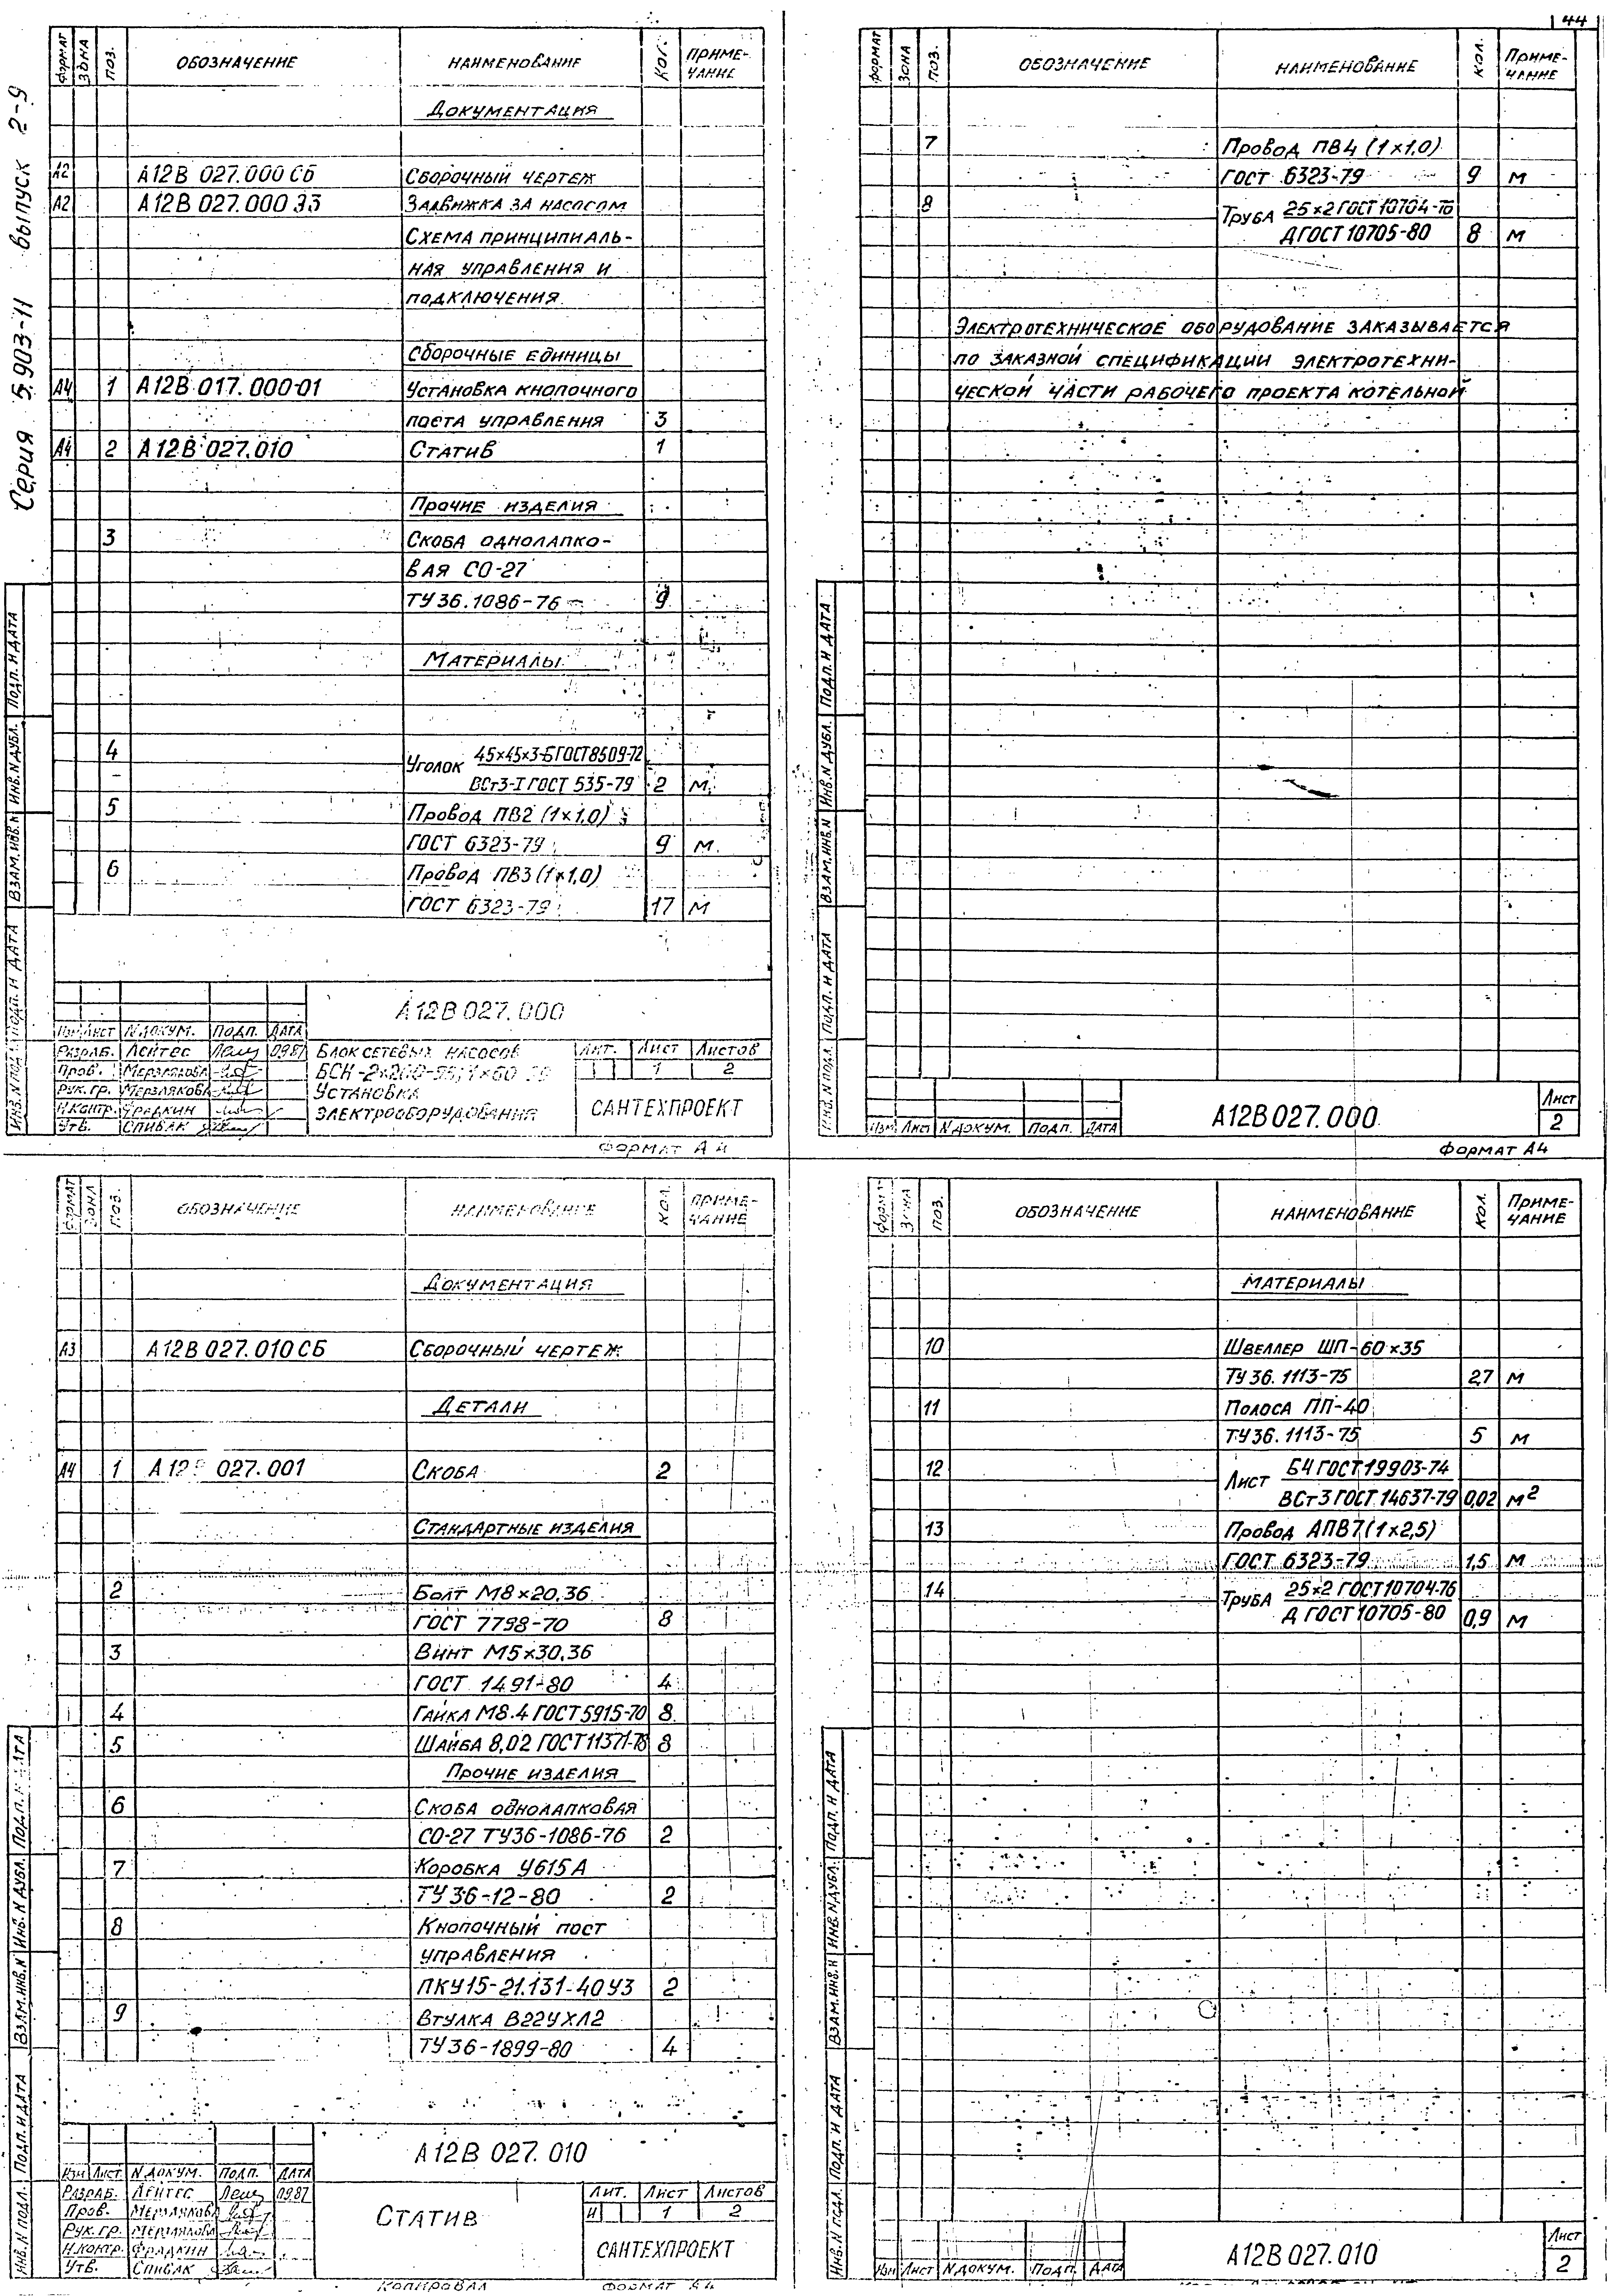 44
Серия 5.903-11 выпуск 2-9
ФОРМАТ ЗОНА ПОЗ. ОБОЗНАЧЕНИЕ НАИМЕНОВАНИЕ КОЛ. ПРИМЕ-
ЧАНИЕ
ДОКУМЕНТАЦИЯ
А2 А12В 027.000 СБ СБОРОЧНЫЙ ЧЕРТЕЖ
А2 А12В 027.000 ЭЗ ЗАДВИЖКА ЗА НАСОСОМ
СХЕМА ПРИНЦИПИАЛЬ-
НАЯ УПРАВЛЕНИЯ И
ПОДКЛЮЧЕНИЯ
СБОРОЧНЫЕ ЕДИНИЦЫ
А4 1 А12В 017.000-01 УСТАНОВКА КНОПОЧНОГО
ПОСТА УПРАВЛЕНИЯ 3
А4 2 А12В 027.010 СТАТИВ 1
ПРОЧИЕ ИЗДЕЛИЯ
3 СКОБА ОДНОЛАПКО-
ВАЯ СО-27
ТУ 36.1086-76 9
МАТЕРИАЛЫ
4 УГОЛОК 45×45×3-Б ГОСТ 8509-72
ВСт3-I ГОСТ 535-79 2 М
5 ПРОВОД ПВ2 (1×1,0)
ГОСТ 6323-79 9 М
6 ПРОВОД ПВ3 (1×1,0)
ГОСТ 6323-79 17 М
ИНВ.N ПОДЛ. ПОДП. И ДАТА ВЗАМ.ИНВ.N ИНВ.N ДУБЛ. ПОДП. И ДАТА
А12В 027.000
ИЗМ ЛИСТ N ДОКУМ. ПОДП. ДАТА
РАЗРАБ. ЛЕЙТЕС 09.87
ПРОВ. МЕРЗЛЯКОВА
РУК. ГР. МЕРЗЛЯКОВА
Н.КОНТР. ФРАДКИН
УТВ. СПИВАК
БЛОК СЕТЕВЫХ НАСОСОВ
УСТАНОВКА
ЭЛЕКТРООБОРУДОВАНИЯ
ЛИТ. ЛИСТ ЛИСТОВ
1 2
САНТЕХПРОЕКТ
ФОРМАТ А4
ФОРМАТ ЗОНА ПОЗ. ОБОЗНАЧЕНИЕ НАИМЕНОВАНИЕ КОЛ. ПРИМЕ-
ЧАНИЕ
7 ПРОВОД ПВ4 (1×1,0)
ГОСТ 6323-79 9 М
8 ТРУБА 25×2 ГОСТ 10704-76
Д ГОСТ 10705-80 8 М
ЭЛЕКТРОТЕХНИЧЕСКОЕ ОБОРУДОВАНИЕ ЗАКАЗЫВАЕТСЯ
ПО ЗАКАЗНОЙ СПЕЦИФИКАЦИИ ЭЛЕКТРОТЕХНИ-
ЧЕСКОЙ ЧАСТИ РАБОЧЕГО ПРОЕКТА КОТЕЛЬНОЙ
ИНВ.N ПОДЛ. ПОДП. И ДАТА ВЗАМ.ИНВ.N ИНВ.N ДУБЛ. ПОДП. И ДАТА
ИЗМ ЛИСТ N ДОКУМ. ПОДП. ДАТА
А12В 027.000
ЛИСТ
2
ФОРМАТ А4
ФОРМАТ ЗОНА ПОЗ. ОБОЗНАЧЕНИЕ НАИМЕНОВАНИЕ КОЛ. ПРИМЕ-
ЧАНИЕ
ДОКУМЕНТАЦИЯ
А3 А12В 027.010 СБ СБОРОЧНЫЙ ЧЕРТЕЖ
ДЕТАЛИ
А4 1 А12В 027.001 СКОБА 2
СТАНДАРТНЫЕ ИЗДЕЛИЯ
2 БОЛТ М8×20.36
ГОСТ 7798-70 8
3 ВИНТ М5×30.36
ГОСТ 1491-80 4
4 ГАЙКА М8.4 ГОСТ 5915-70 8
5 ШАЙБА 8.02 ГОСТ 11371-78 8
ПРОЧИЕ ИЗДЕЛИЯ
6 СКОБА ОДНОЛАПКОВАЯ
СО-27 ТУ36-1086-76 2
7 КОРОБКА У615 А
ТУ 36-12-80 2
8 КНОПОЧНЫЙ ПОСТ
УПРАВЛЕНИЯ
ПКУ15-21.131-40У3 2
9 ВТУЛКА В22УХЛ2
ТУ 36-1899-80 4
ИНВ.N ПОДЛ. ПОДП. И ДАТА ВЗАМ.ИНВ.N ИНВ.N ДУБЛ. ПОДП. И ДАТА
А12В 027.010
ИЗМ ЛИСТ N ДОКУМ. ПОДП. ДАТА
РАЗРАБ. ЛЕЙТЕС 09.87
ПРОВ. МЕРЗЛЯКОВА
РУК. ГР. МЕРЗЛЯКОВА
Н.КОНТР. ФРАДКИН
УТВ. СПИВАК
СТАТИВ
ЛИТ. ЛИСТ ЛИСТОВ
И 1 2
САНТЕХПРОЕКТ
КОПИРОВАЛ ФОРМАТ А4
ФОРМАТ ЗОНА ПОЗ. ОБОЗНАЧЕНИЕ НАИМЕНОВАНИЕ КОЛ. ПРИМЕ-
ЧАНИЕ
МАТЕРИАЛЫ
10 ШВЕЛЛЕР ШП-60×35
ТУ 36.1113-75 2,7 М
11 ПОЛОСА ПП-40
ТУ 36.1113-75 5 М
12 ЛИСТ Б4 ГОСТ 19903-74
ВСт3 ГОСТ 14637-79 0,02 М2
13 ПРОВОД АПВ7 (1×2,5)
ГОСТ 6323-79 1,5 М
14 ТРУБА 25×2 ГОСТ 10704-76
Д ГОСТ 10705-80 0,9 М
ИНВ.N ПОДЛ. ПОДП. И ДАТА ВЗАМ.ИНВ.N ИНВ.N ДУБЛ. ПОДП. И ДАТА
ИЗМ ЛИСТ N ДОКУМ. ПОДП. ДАТА
А12В 027.010
ЛИСТ
2